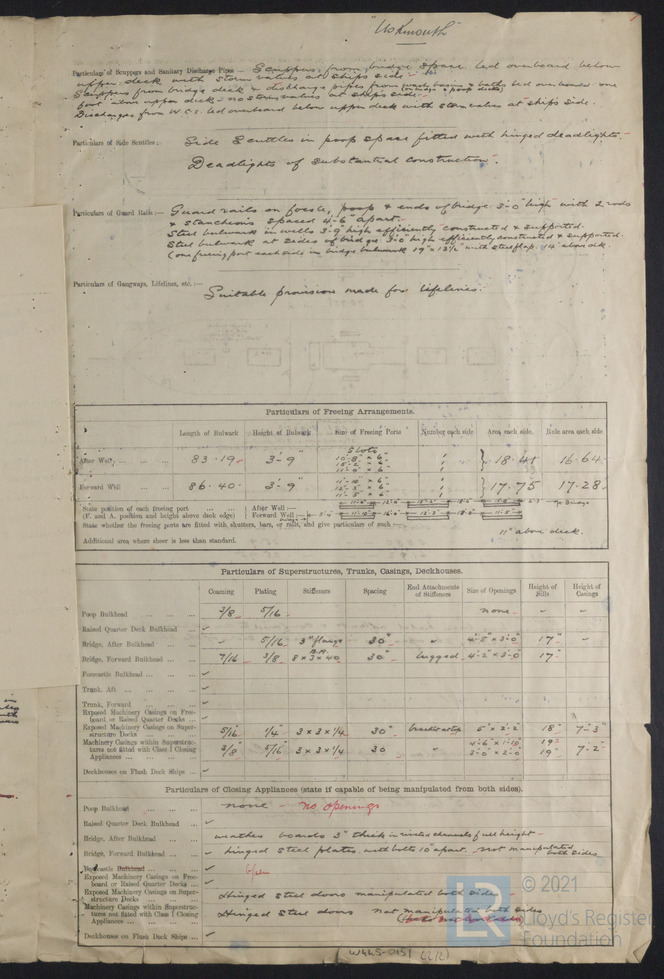 "Uskmouth"
Particulars of Scuppers and Sanitary Discharge Pipes — Scuppers from bridge space led overboard below
upper deck with storm valves at ship's side.
Scuppers from bridge deck & discharge pipes from basins & baths led overboard one
foot above upper deck - no storm valves at ship's side.
Discharges from W.C.s led overboard below upper deck with storm valves at ship's side.
Particulars of Side Scuttles:— Side Scuttles in poop space fitted with hinged deadlights.
Deadlights of substantial construction.
Particulars of Guard Rails:— Guard rails on focsle, poop & ends of bridge 3'-0" high with 2 rods
& stanchions spaced 4'-6" apart.
Steel bulwark in wells 3'-9" high efficiently constructed & supported.
Steel bulwark at sides of bridge 3'-0" high efficiently constructed & supported.
(one freeing port each side in bridge bulwark 19" x 13½" with steel flap. 14" above dk.
Particulars of Gangways, Lifelines, etc.:— Suitable provision made for lifelines.
Particulars of Freeing Arrangements.
Length of Bulwark Height of Bulwark Size of Freeing Ports Number each side Area each side. Rule area each side
After Well, 83.19 3'-9" 18.41 16.64
Forward Well 86.40 3'-9" 17.75 17.28
State position of each freeing port After Well:—
(F. and A. position and height above deck edge) Forward Well:—
State whether the freeing ports are fitted with shutters, bars, or rails, and give particulars of such:— 11" above deck.
Additional area where sheer is less than standard.
Particulars of Superstructures, Trunks, Casings, Deckhouses.
Coaming Plating Stiffeners Spacing End Attachments of Stiffeners Size of Openings Height of Sills Height of Casings
Poop Bulkhead 3/8 5/16 none
Raised Quarter Deck Bulkhead
Bridge, After Bulkhead 5/16 3" flange 30" 4'-5" x 3'-0" 17"
Bridge, Forward Bulkhead 7/16 3/8 8 x 3 x .40 30" lugged 4'-2" x 3'-0" 17"
Forecastle Bulkhead
Trunk, Aft
Trunk, Forward
Exposed Machinery Casings on Freeboard or Raised Quarter Decks
Exposed Machinery Casings on Superstructure Decks 5/16 1/4 3 x 3 x 1/4 30" 5' x 2'-2" 18" 7'-3"
Machinery Casings within Superstructures not fitted with Class I Closing Appliances 3/8 5/16 3 x 3 x 1/4 30 19" 7'-2"
Deckhouses on Flush Deck Ships
Particulars of Closing Appliances (state if capable of being manipulated from both sides).
Poop Bulkhead none - No openings
Raised Quarter Deck Bulkhead
Bridge, After Bulkhead weather boards 3" thick in riveted channels full height
Bridge, Forward Bulkhead hinged steel plates with bolts 10" apart. not manipulated both sides
Forecastle Bulkhead Open
Exposed Machinery Casings on Freeboard or Raised Quarter Decks
Exposed Machinery Casings on Superstructure Decks Hinged steel doors manipulated both sides
Machinery Casings within Superstructures not fitted with Class I Closing Appliances Hinged steel doors not manipulated both sides
Deckhouses on Flush Deck Ships
© 2021
LR
Lloyd's Register
Foundation
W445-0151 (2/2)